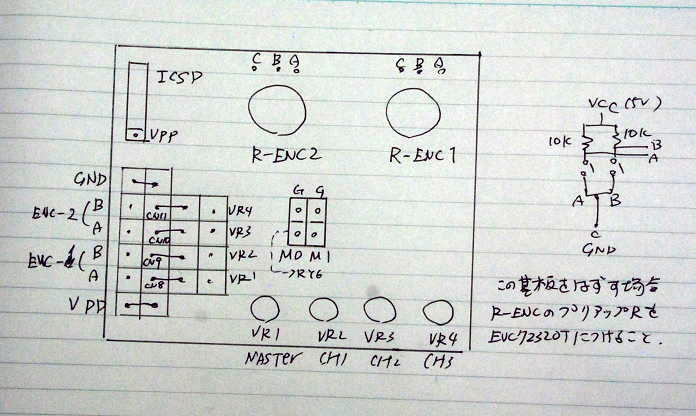 C B A
C B A
ICSP
VPP
R-ENC2
R-ENC1
VCC (5V)
10K
10K
B
A
A
B
C
GND
GND
ENC-2
B
A
ENC-1
B
A
VDD
CN11
CN10
CN9
CN8
VR4
VR3
VR2
VR1
G G
M0 M1
→RY6
VR1 VR2 VR3 VR4
MASTER CH1 CH2 CH3
この基板をはずす場合
R-ENCのプリアップRを
EVC72320Tにつけること.